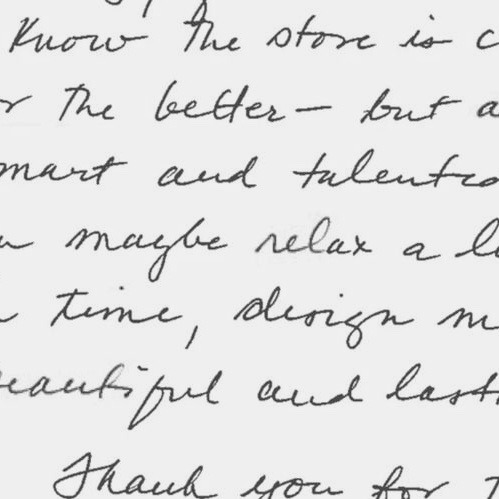 Know the store is c
r the better - but a
mart and talente
maybe relax a l
time, design m
eautiful and last
Thank you for